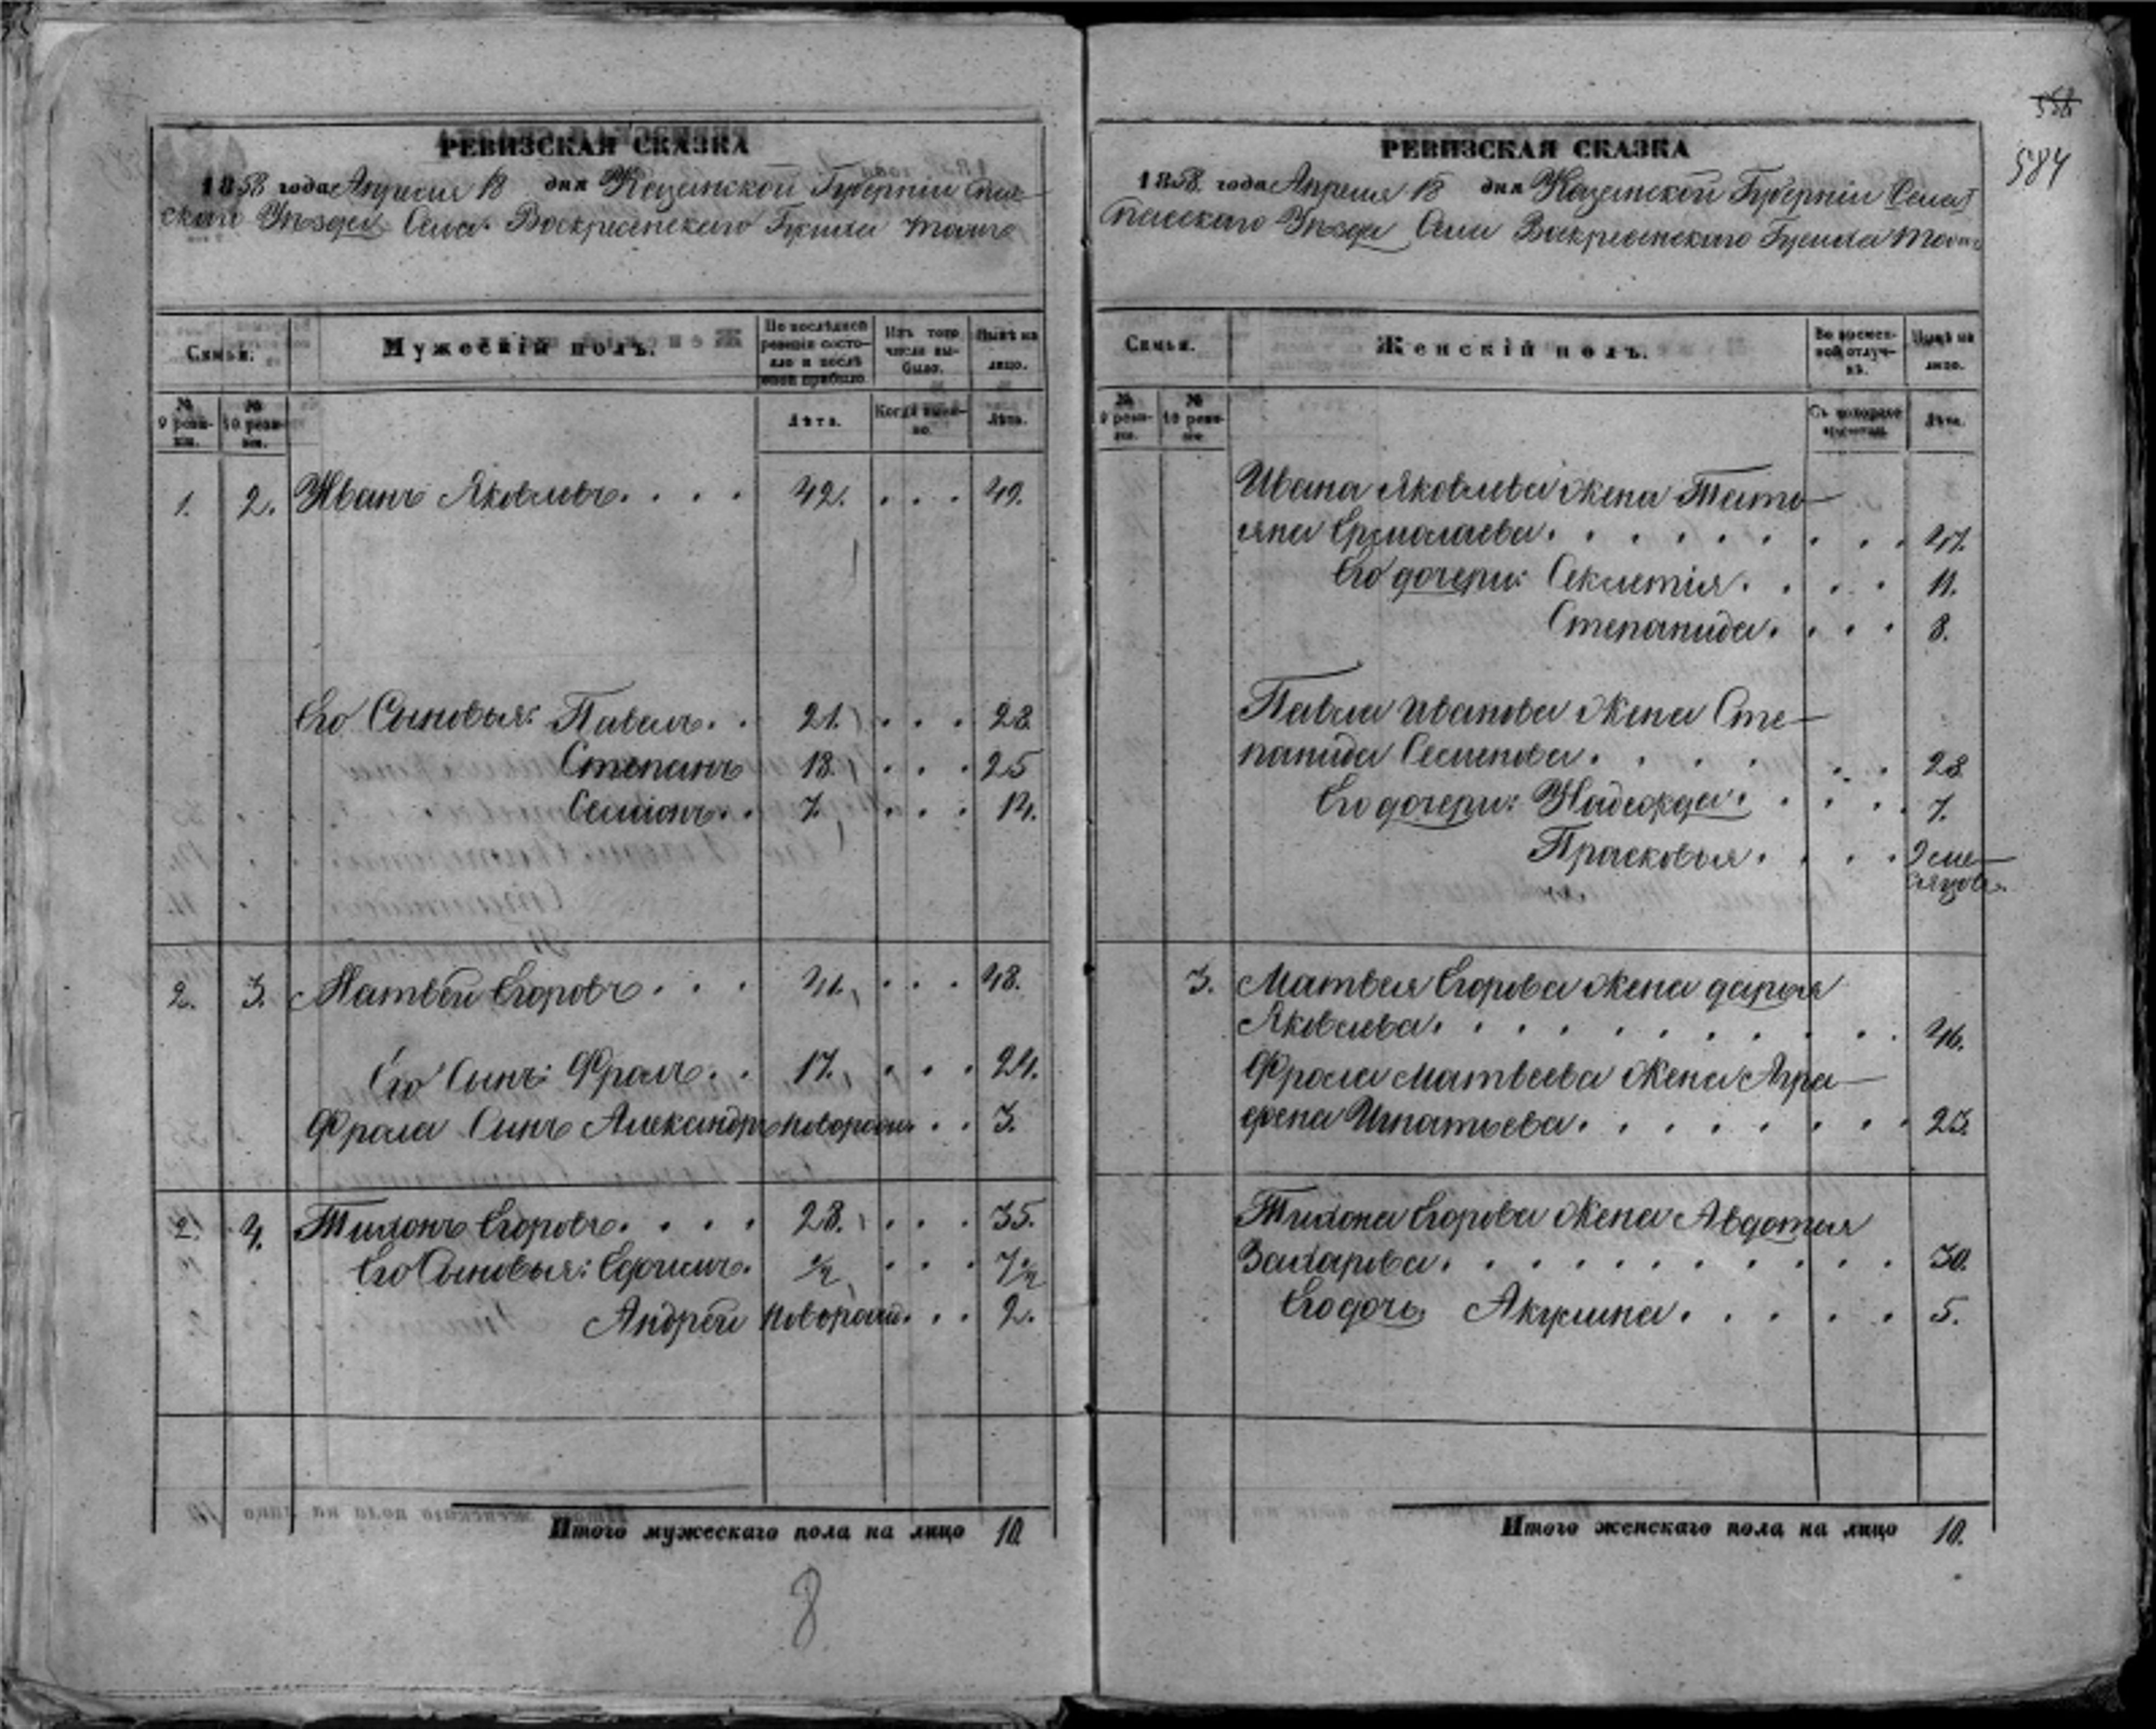 РЕВИЗСКАЯ СКАЗКА
1858 года Апреля 18 дня Казанской Губернии Спас-
скаго Уезда Села Воскресенскаго
Семьи.
Мужескій полъ.
По послѣдней ревизіи состояло и послѣ оной прибыло.
Изъ того числа выбыло.
Нынѣ на лицо.
№ 9 ревизіи.
№ 10 ревизіи.
Лѣта.
Когда именно.
Лѣта.
1. 2. Иванъ Яковлевъ . . . . 42. . . . 49.
Его Сыновья: Павелъ . . 21. . . . 28.
Степанъ 18. . . . 25
Семіонъ . . 7. . . . 14.
2. 3. Матвей Егоровъ . . . 41. . . . 48.
Его Сынъ: Фролъ . . 17. . . . 24.
Фрола Сынъ Александръ новорожд. . . 3.
2. 4. Тихонъ Егоровъ . . . . 28. . . . 35.
Его Сыновья: Ефимъ . ½ . . . 7½
Андрей новорожд. . . 2.
Итого мужескаго пола на лицо 10.
8
558
584
РЕВИЗСКАЯ СКАЗКА
1858 года Апреля 18 дня Казанской Губерніи
Спасскаго Уезда Села Воскресенскаго
Семьи.
Женскій полъ.
Во временной отлучкѣ.
Нынѣ на лицо.
№ 9 ревизіи.
№ 10 ревизіи.
Съ котораго времени.
Лѣта.
Ивана Яковлева жена Тать-
яна Ермолаева . . . . . . . . . 47.
Его дочери: Секлетія . . . . . 11.
Степанида . . . . 8.
Павла Иванова жена Сте-
панида Семенова . . . . . . . 28
Его дочери: Надежда . . . . . 7.
Прасковья . . . . 9 ме-
сяцовъ.
3. Матвея Егорова жена дарья
Яковлева . . . . . . . . . . . 46.
Фрола Матвеева жена Агра-
фена Игнатьева . . . . . . . . 23.
Тихона Егорова жена Авдотья
Захарова . . . . . . . . . . . 30.
Его дочь Акулина . . . . . 5.
Итого женскаго пола на лицо 10.